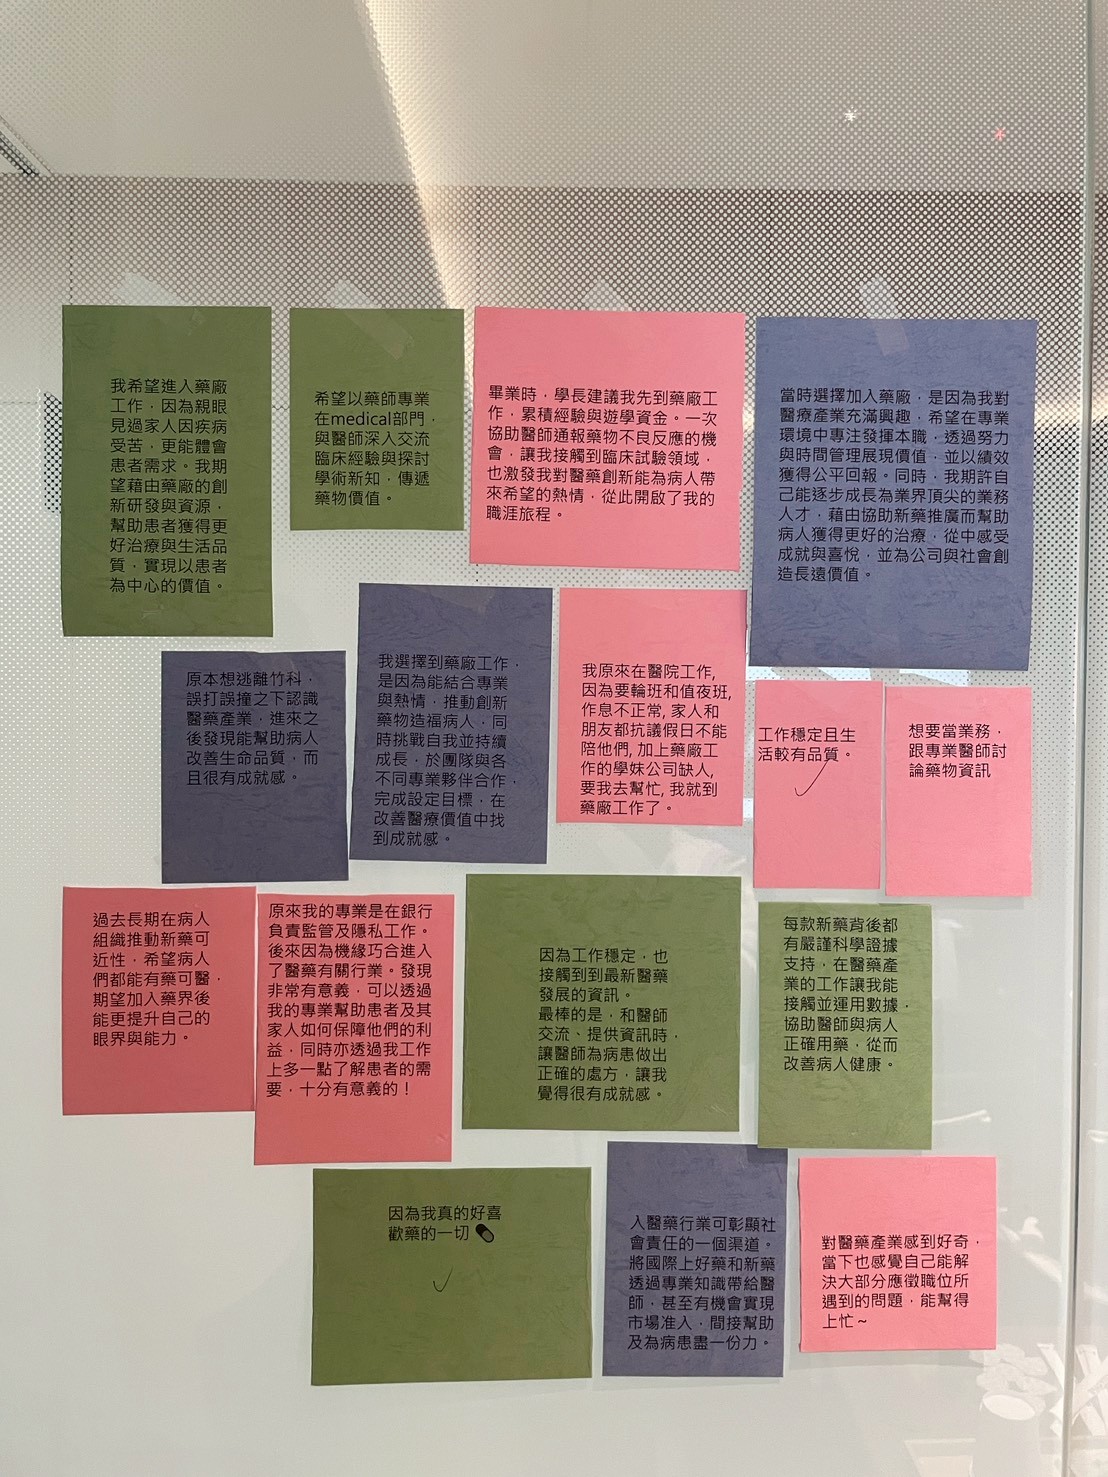 我希望進入藥廠
工作，因為親眼
見過家人因疾病
受苦，更能體會
患者需求。我期
望藉由藥廠的創
新研發與資源，
幫助患者獲得更
好治療與生活品
質，實現以患者
為中心的價值。
希望以藥師專業
在medical部門，
與醫師深入交流
臨床經驗與探討
學術新知，傳遞
藥物價值。
畢業時，學長建議我先到藥廠工
作，累積經驗與遊學資金。一次
協助醫師通報藥物不良反應的機
會，讓我接觸到臨床試驗領域，
也激發我對醫藥創新能為病人帶
來希望的熱情，從此開啟了我的
職涯旅程。
當時選擇加入藥廠，是因為我對
醫療產業充滿興趣，希望在專業
環境中專注發揮本職，透過努力
與時間管理展現價值，並以績效
獲得公平回報。同時，我期許自
己能逐步成長為業界頂尖的業務
人才，藉由協助新藥推廣而幫助
病人獲得更好的治療，從中感受
成就與喜悅，並為公司與社會創
造長遠價值。
原本想逃離竹科，
誤打誤撞之下認識
醫藥產業，進來之
後發現能幫助病人
改善生命品質，而
且很有成就感。
我選擇到藥廠工作，
是因為能結合專業
與熱情，推動創新
藥物造福病人，同
時挑戰自我並持續
成長，於團隊與各
不同專業夥伴合作，
完成設定目標，在
改善醫療價值中找
到成就感。
我原來在醫院工作,
因為要輪班和值夜班,
作息不正常, 家人和
朋友都抗議假日不能
陪他們, 加上藥廠工
作的學妹公司缺人,
要我去幫忙, 我就到
藥廠工作了。
工作穩定且生
活較有品質。
想要當業務，
跟專業醫師討
論藥物資訊
過去長期在病人
組織推動新藥可
近性，希望病人
們都能有藥可醫，
期望加入藥界後
能更提升自己的
眼界與能力。
原來我的專業是在銀行
負責監管及隱私工作。
後來因為機緣巧合進入
了醫藥有關行業。發現
非常有意義，可以透過
我的專業幫助患者及其
家人如何保障他們的利
益，同時亦透過我工作
上多一點了解患者的需
要，十分有意義的！
因為工作穩定，也
接觸到到最新醫藥
發展的資訊。
最棒的是，和醫師
交流、提供資訊時，
讓醫師為病患做出
正確的處方，讓我
覺得很有成就感。
每款新藥背後都
有嚴謹科學證據
支持，在醫藥產
業的工作讓我能
接觸並運用數據，
協助醫師與病人
正確用藥，從而
改善病人健康。
因為我真的好喜
歡藥的一切💊
入醫藥行業可彰顯社
會責任的一個渠道。
將國際上好藥和新藥
透過專業知識帶給醫
師，甚至有機會實現
市場准入，間接幫助
及為病患盡一份力。
對醫藥產業感到好奇，
當下也感覺自己能解
決大部分應徵職位所
遇到的問題，能幫得
上忙～